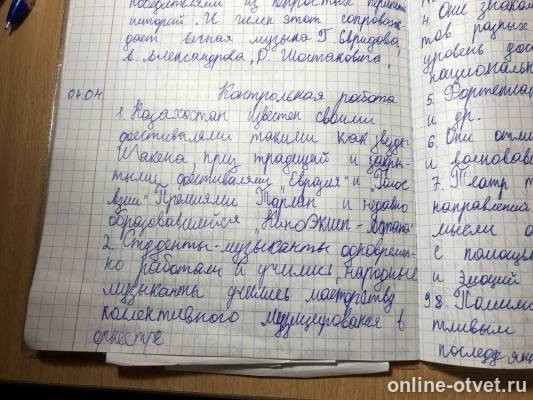 победителями из непростых
питорий. И гимн этот сопровож-
дает вечная музыка Г Свиридова
А. Александрова, Д. Шостаковича.
04.04. Контрольная работа
1. Казахостан известен своими
фестивалями такими как звезды
Шакена, приз традиций и закры-
тыми фестивалями "Евразия" и "Голос
Азии". Премиями Тарлан и недавно
образовавшийся "КиноЭкшн-Астана"
2. Студенты-музыканты одновремен-
ко работали и учились, народные
музыканты учились мастерству
колективного музицирования в
оркестре
4. Они знаком
тов разных
уровень дос
национальн
5. Фортепиа
и др.
6. Они отли
и волновав
7. Театр т
направлений
мысли о
с помощь
и эмоций
98. Помимо
тливым
последу
online-otvet.ru